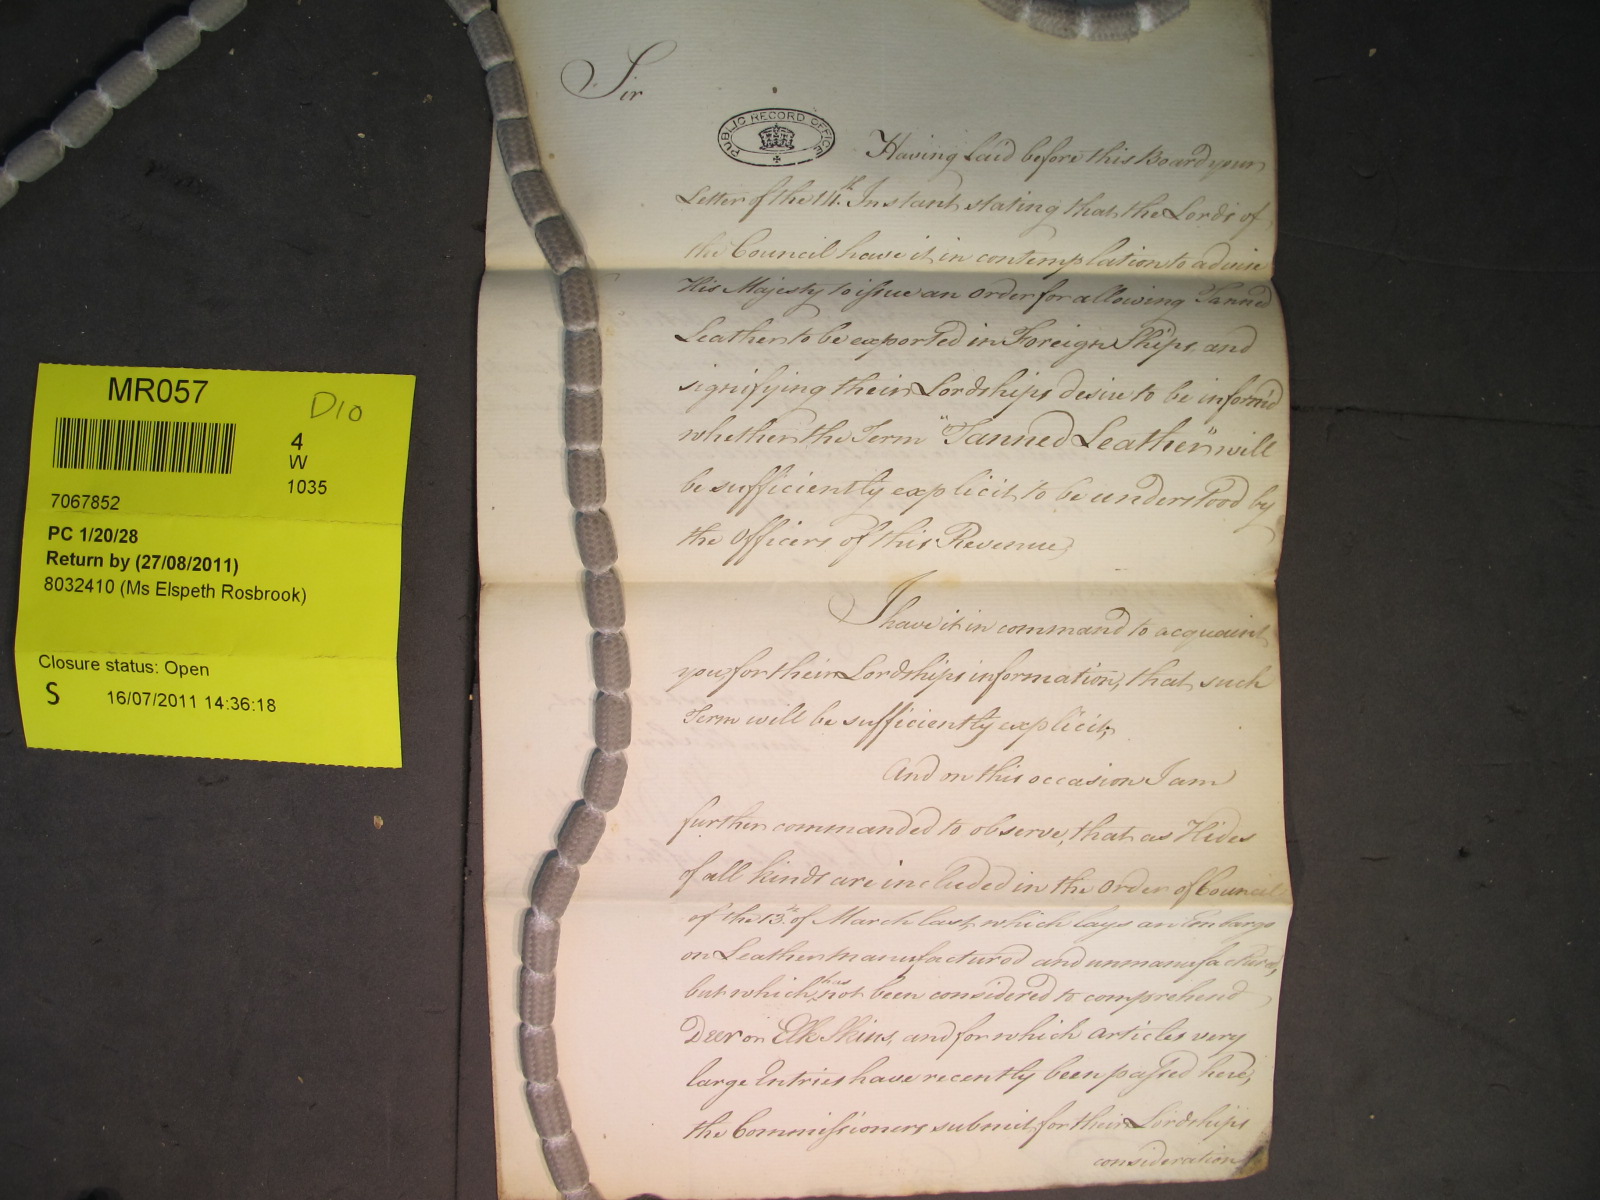 Sir
PUBLIC RECORD OFFICE
Having laid before this Board your
Letter of the 14th. Instant, stating that the Lords of
the Council have it in contemplation to advise
His Majesty to issue an Order for allowing Tanned
Leather to be exported in Foreign Ships, and
signifying their Lordships desire to be inform'd
whether the Term "Tanned Leather" will
be sufficiently explicit to be understood by
the Officers of this Revenue,
I have it in command to acquaint
you, for their Lordships information, that such
Term will be sufficiently explicit;
And on this occasion I am
further commanded to observe, that as Hides
of all kinds are included in the Order of Council
of the 13th. of March last, which lays an Embargo
on Leather manufactured and unmanufactured,
but which has not been considered to comprehend
Deer or Elk Skins, and for which Articles very
large Entries have recently been passed here,
the Commissioners submit, for their Lordships
consideration
MR057
D10
4
W
1035
7067852
PC 1/20/28
Return by (27/08/2011)
8032410 (Ms Elspeth Rosbrook)
Closure status: Open
S 16/07/2011 14:36:18